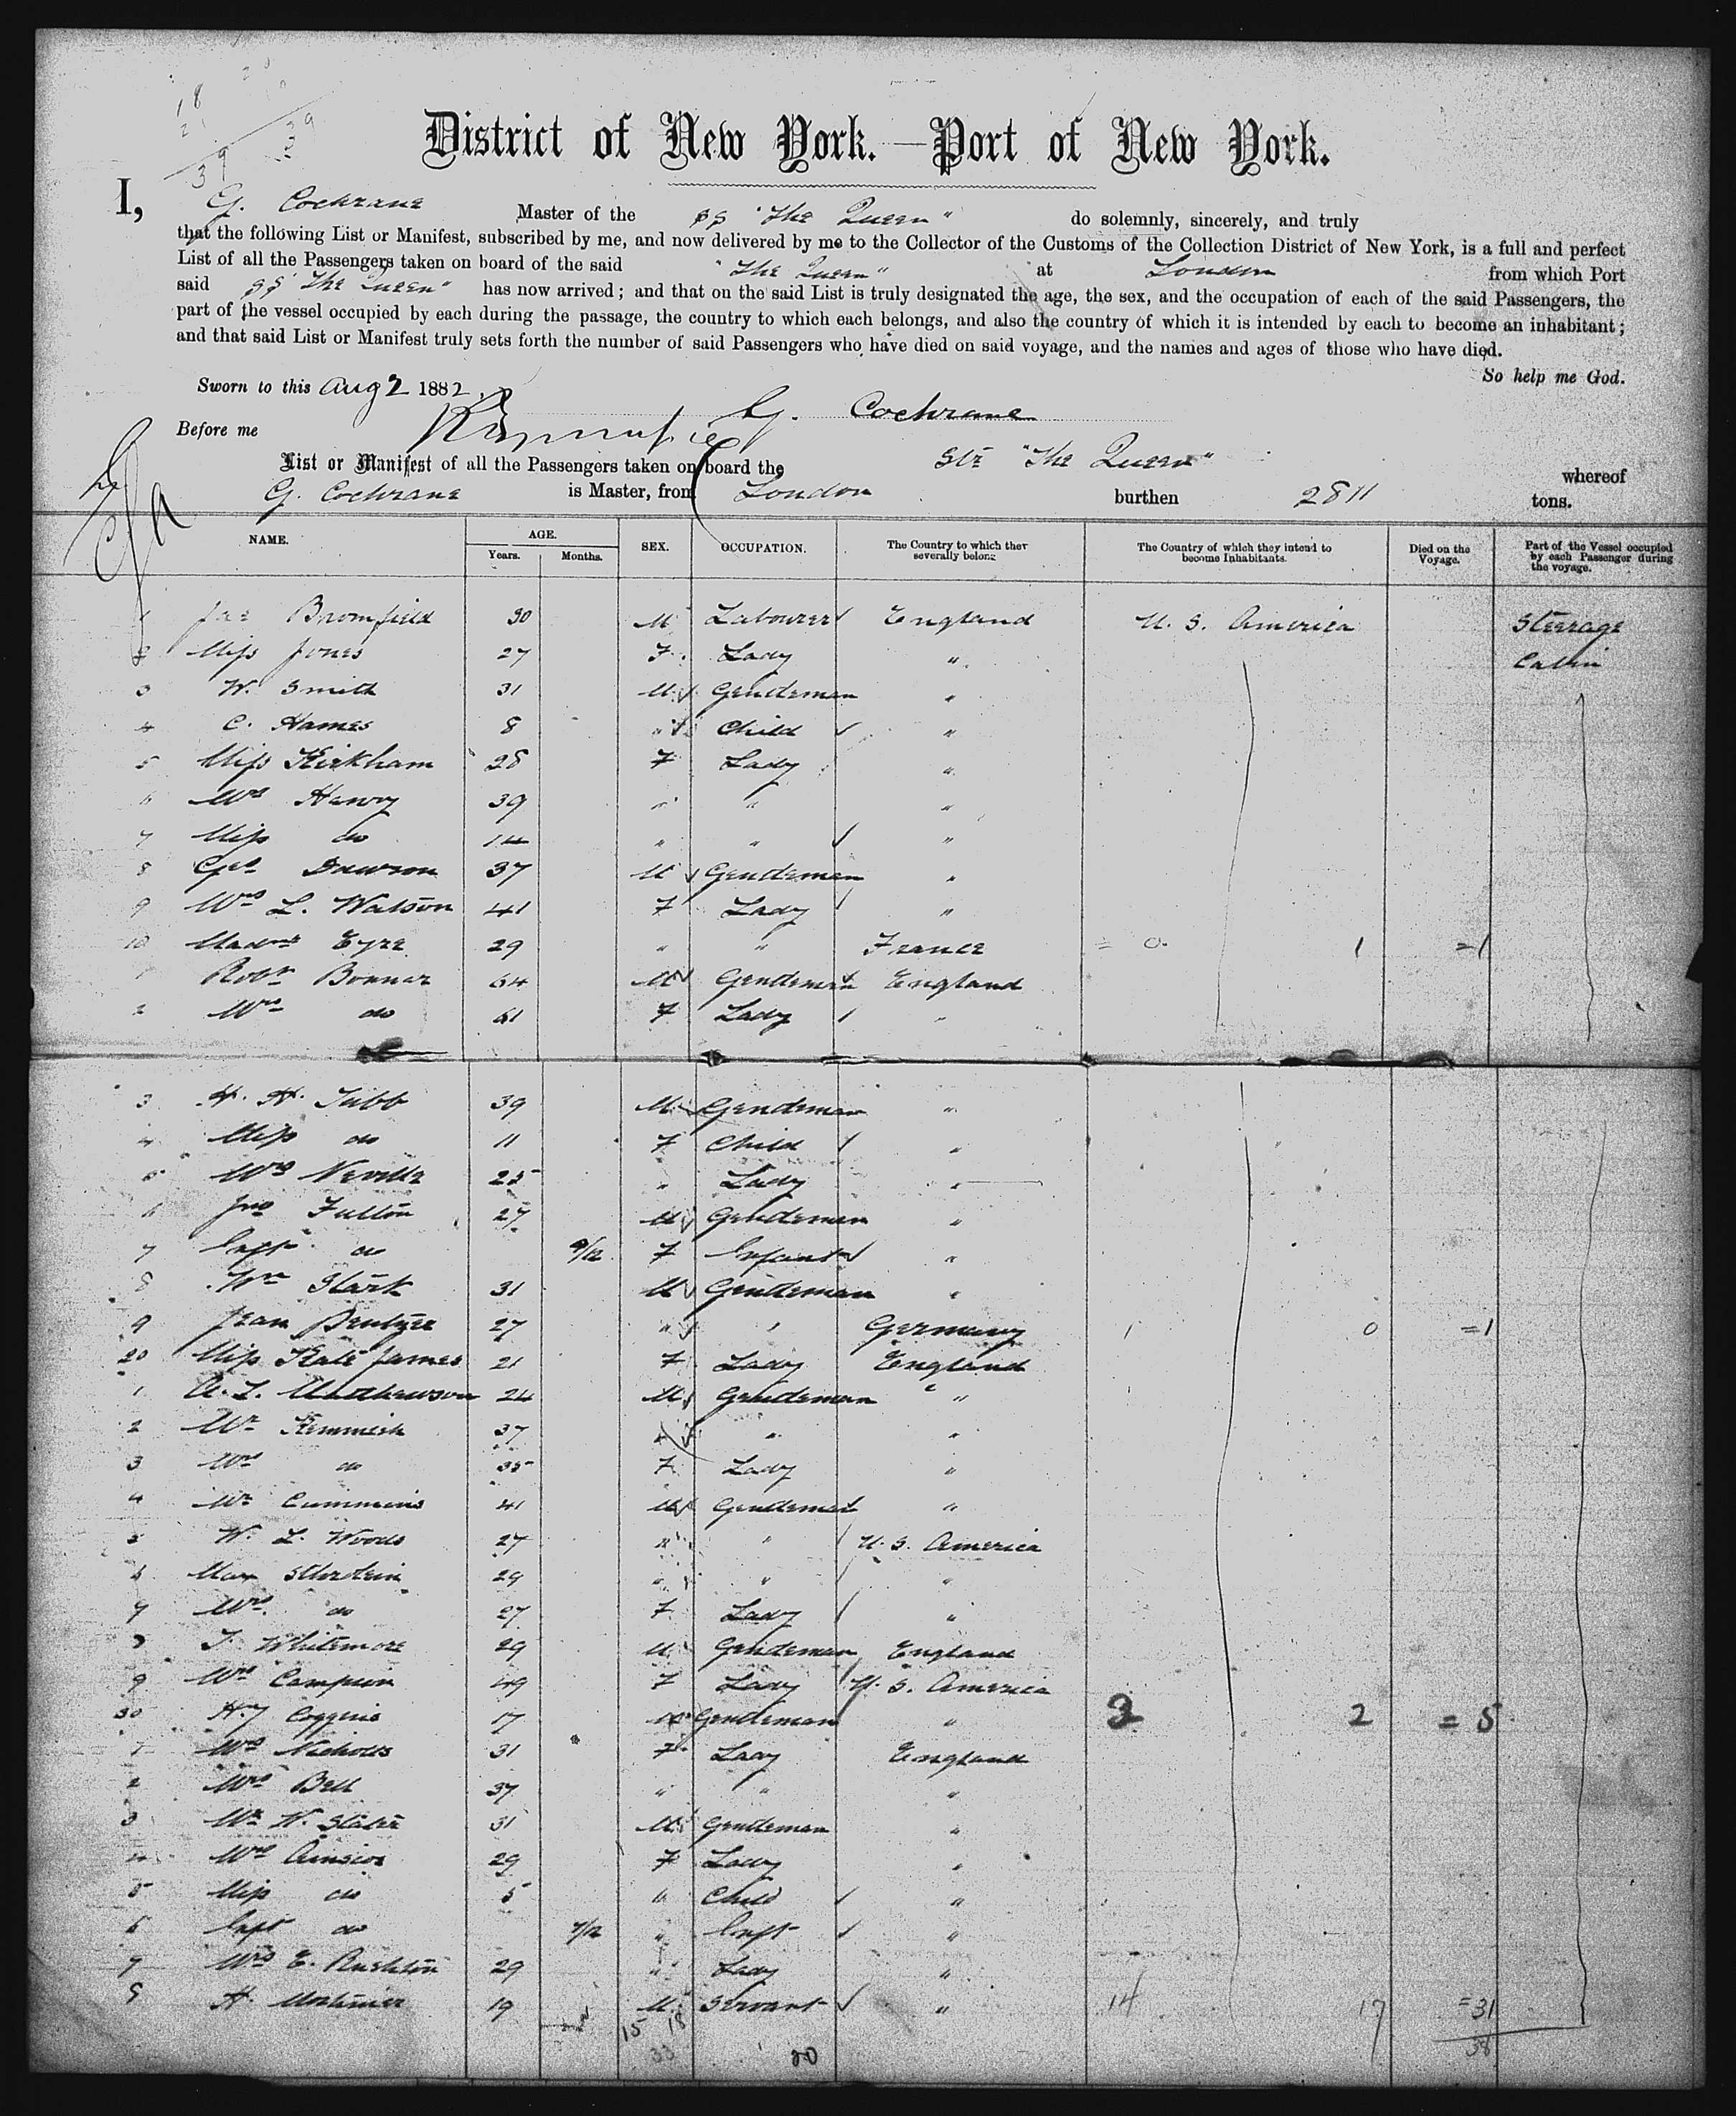 18
21
39
39
District of New York.—Port of New York.
I, G. Cochrane Master of the SS "The Queen" do solemnly, sincerely, and truly
that the following List or Manifest, subscribed by me, and now delivered by me to the Collector of the Customs of the Collection District of New York, is a full and perfect
List of all the Passengers taken on board of the said "The Queen" at London from which Port
said SS "The Queen" has now arrived; and that on the said List is truly designated the age, the sex, and the occupation of each of the said Passengers, the
part of the vessel occupied by each during the passage, the country to which each belongs, and also the country of which it is intended by each to become an inhabitant;
and that said List or Manifest truly sets forth the number of said Passengers who have died on said voyage, and the names and ages of those who have died.
So help me God.
Sworn to this Aug 2 1882.
G. Cochrane
Before me
List or Manifest of all the Passengers taken on board the Str "The Queen" whereof
G. Cochrane is Master, from London burthen 2811 tons.
NAME. AGE. Years. Months. SEX. OCCUPATION. The Country to which they severally belong The Country of which they intend to become Inhabitants. Died on the Voyage. Part of the Vessel occupied by each Passenger during the voyage.
1 Jas Bromfield 30 M Labourer England U. S. America Steerage
2 Miss Jones 27 F Lady " Cabin
3 W. Smith 31 M Gentleman "
4 C. Hames 8 " Child "
5 Miss Kirkham 28 F Lady "
6 Mrs Harvy 39 " " "
7 Miss do 14 " " "
8 Geo Dawson 37 M Gentleman "
9 Mrs L. Watson 41 F Lady "
10 Madme Eyre 29 " " France = 0 1 =1
1 Robt Bonnar 64 M Gentleman England
2 Mrs do 61 F Lady "
3 H. H. Tubb 39 M Gentleman "
4 Miss do 11 F Child "
5 Mrs Neville 25 " Lady "
6 Jno Fulton 27 M Gentleman "
7 Inft do 9/12 F Infant "
8 Wm Stark 31 M Gentleman "
9 Jean 27 " " Germany 1 0 =1
20 Miss Kate James 21 F Lady England
1 A. L. Mathewson 24 M Gentleman "
2 Mr Kemmish 37 " " "
3 Mrs do 35 F Lady "
4 Mr Cummins 41 M Gentleman "
5 W. L. Woods 27 " " U. S. America
6 Max 29 " " "
7 Mrs. do 27 F Lady "
8 T. Whitemore 29 M Gentleman England
9 Mrs Campion 49 F Lady U. S. America
30 Hy Coggins 17 M Gentleman " 3 2 = 5
1 Mrs Nicholls 31 F Lady England
2 Mrs Bell 37 " " "
3 Mr W. Slater 31 M Gentleman "
4 Mrs 29 F Lady "
5 Miss do 5 " Child "
6 Inft do 7/12 " Inft "
7 Mrs E. Rushton 29 " Lady "
8 H. Mortimer 19 M Servant " 14 17 =31
15 18 38
33 20